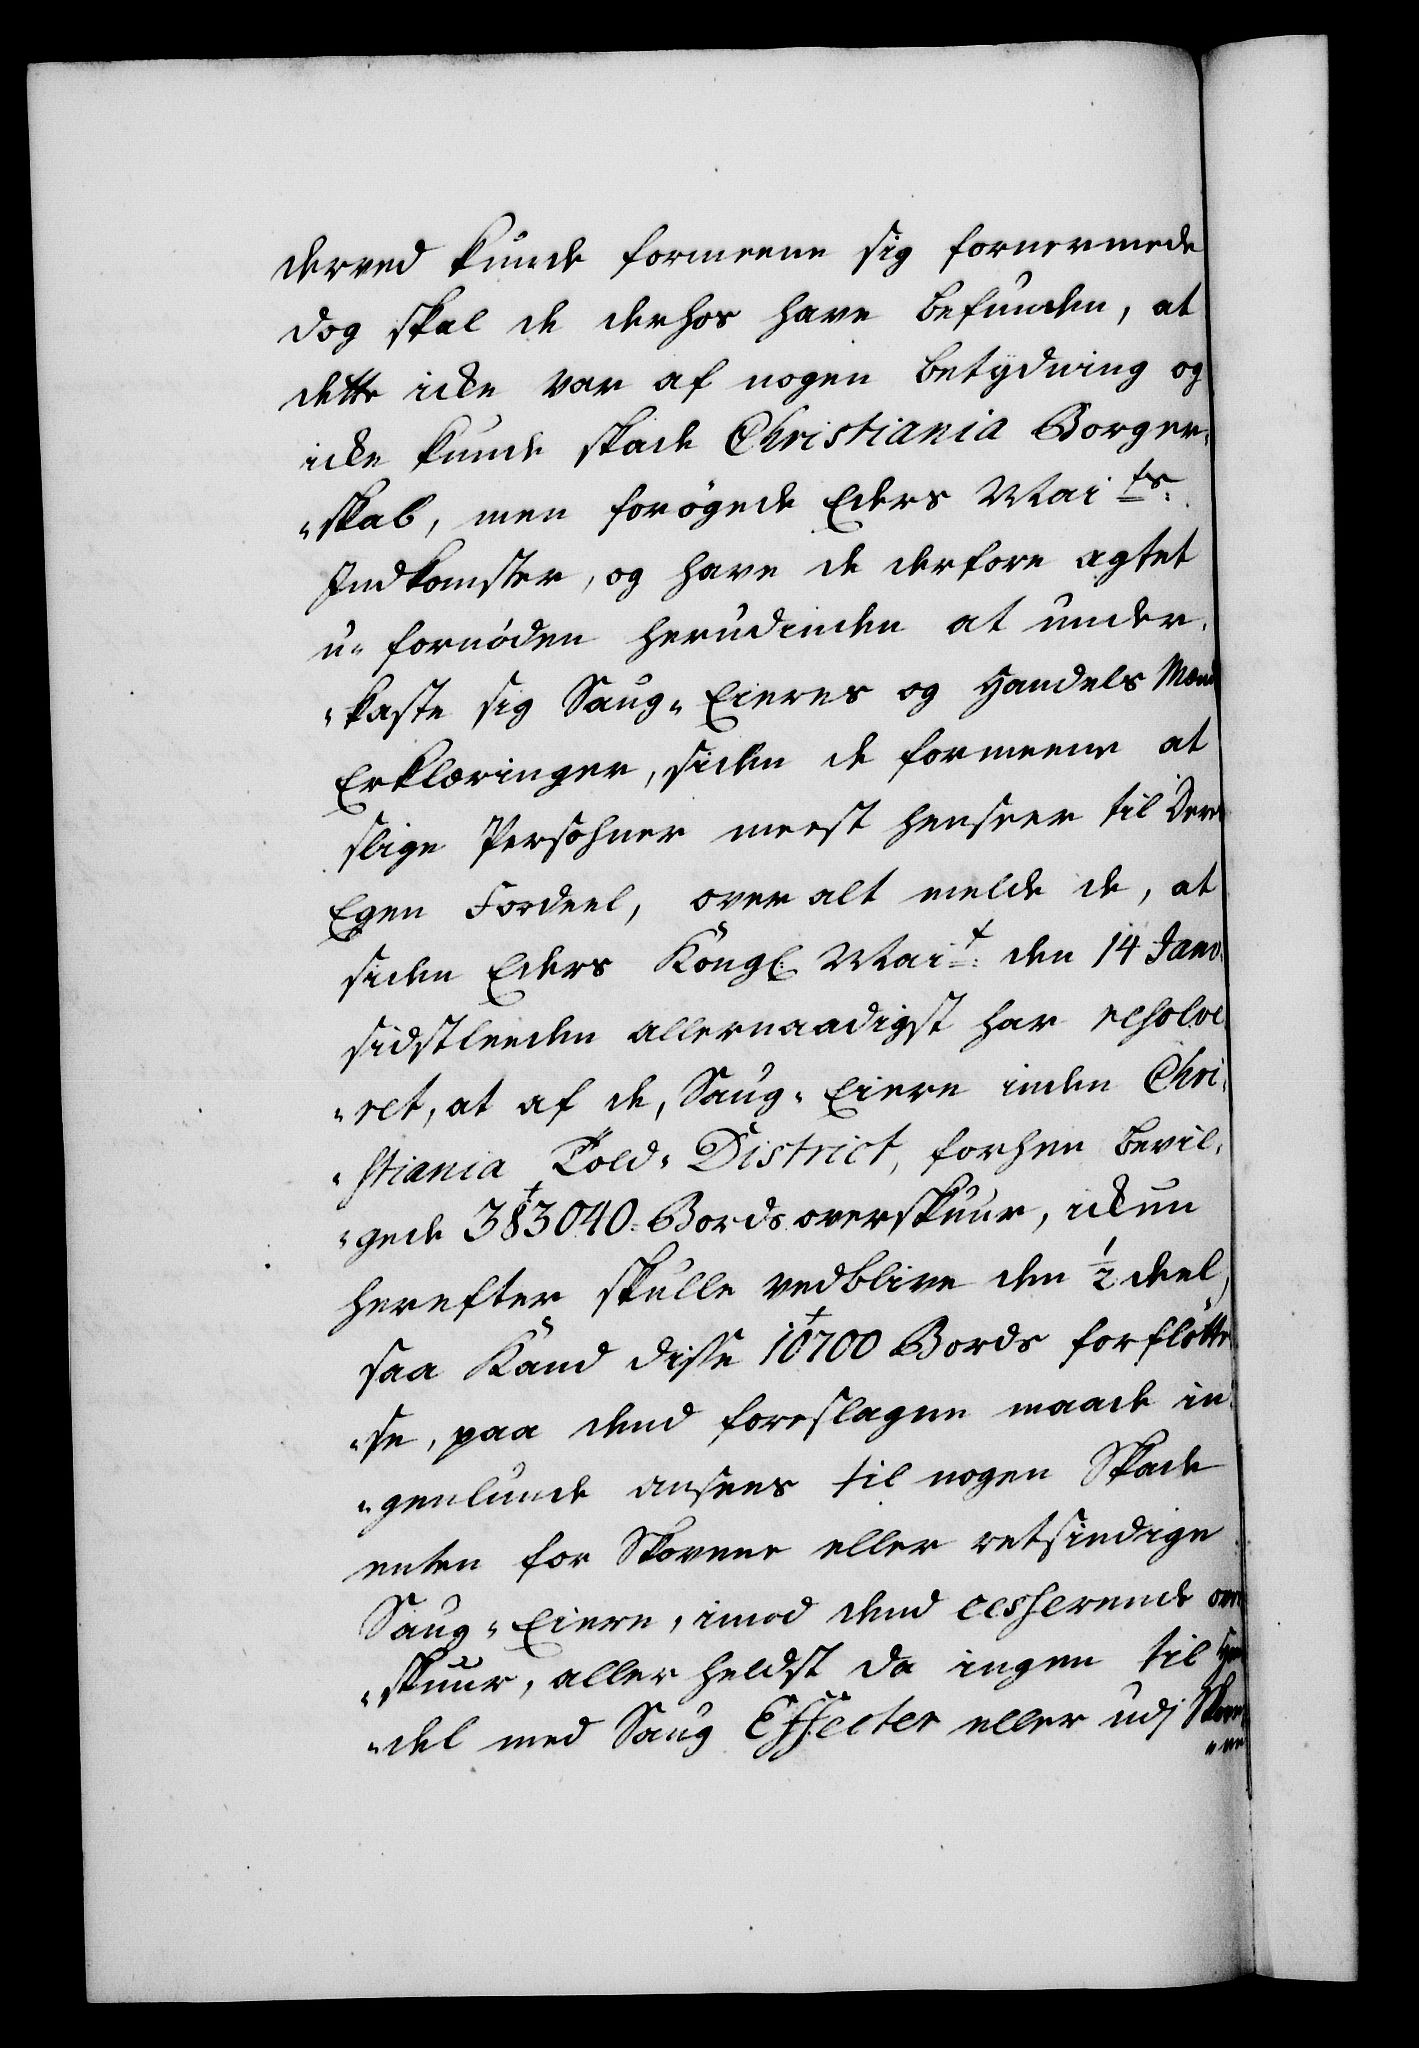 derved kunde formeene sig fornermede
dog skal de derhos have befunden, at
dette icke var af nogen betydning og
icke kunde skade Christiania Borger-
"skab, men forøgede Eders Mai<sup>ts</sup>
Indkomster, og have de derfore agtet
u- fornøden herudinden at under-
"kaste sig Saug- Eieres og Handels Mænd
Erklæringer, siden de formeene at
slige Persohner meest henseer til Deres
Egen Fordeel, over alt melde de, at
siden Eders Kongl: Mai<sup>t</sup>: den 14 Janv:
sidstleeden allernaadigst har resolve-
"ret, at af de, Saug- Eiere inden Chri-
"stiania Told- District, forhen bevil-
"gede 383040. Bords overskuur, ickun
herefter skulle vedblive den ½ deel,
saa Kand disse 10700 Bords forfløttel
"se, paa dend foreslagne maade in-
"genlunde ansees til nogen Skade
enten for Skovene eller retsindige
Saug- Eiere, imod dend cesserende over
"skuur, aller heldst da ingen til Han
"del med Saug Effecter eller udj Skove
"ne